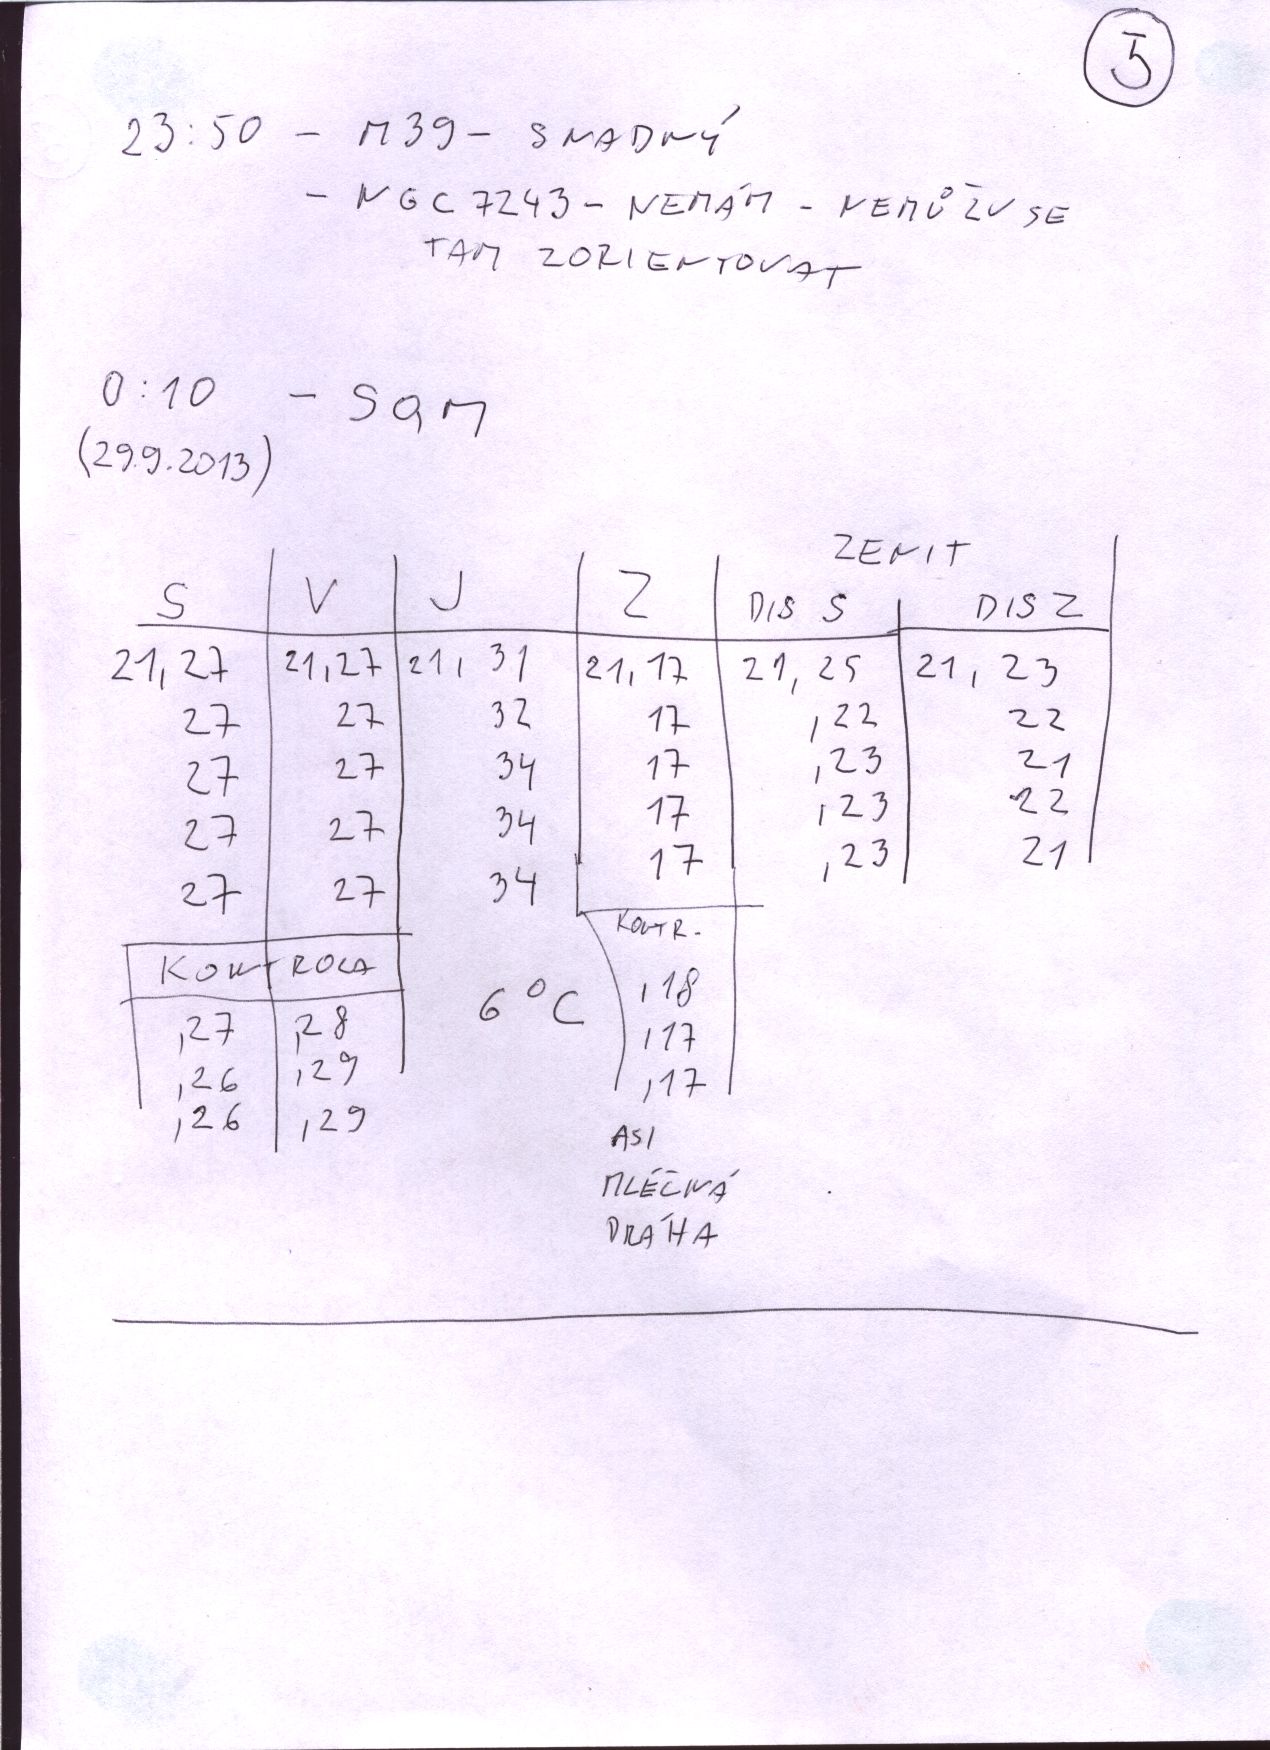 5
23:50 - M39 - SNADNÝ
- NGC 7243 - NEMÁM - NEMŮŽU SE
TAM ZORIENTOVAT
0:10 - SQM
(29.9.2013)
ZENIT
S V J Z DIS S DIS Z
21,27 21,27 21,31 21,17 21,25 21,23
27 27 32 17 ,22 22
27 27 34 17 ,23 21
27 27 34 17 ,23 22
27 27 34 17 ,23 21
KONTROLA 6°C KONTR.
,27 ,28 ,18
,26 ,29 ,17
,26 ,29 ,17
ASI
MLÉČNÁ
DRÁHA